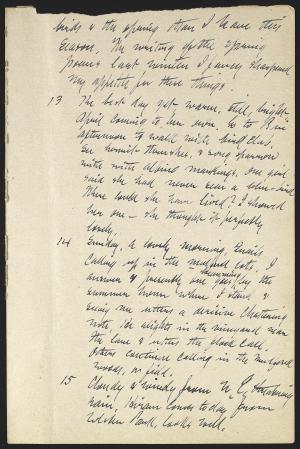 birds & the spring than I have this
season. The writing of the spring
poems last winter I surely sharpened
my appetite for these things.
13 The best day yet warm, still, bright
April coming to her own. Go to P. in
afternoon to walk with bird class.
See hermit thrushes, & song sparrow
with with markings. One girl
said she had never seen a blue-bird
Where could she have lived? I showed
her one - she thought it perfectly
lovely.
14 Sunday, a lovely morning, Quails
calling up in the lots. I
answer & presently one comes by the
summer house where I stand, &
seeing me utters a derisive chattering
note, he alights in the vineyard near
the lane & utters the clear call.
Others continue calling in the
woods, or field.
15 Cloudy & windy from N. E. threatening
rain, Hiram comes today from
Park, looks well.